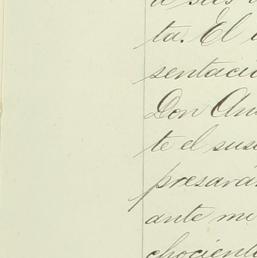 a sus
ta. El
sentació
Don An
te el sus
presara
ante mi
chocient